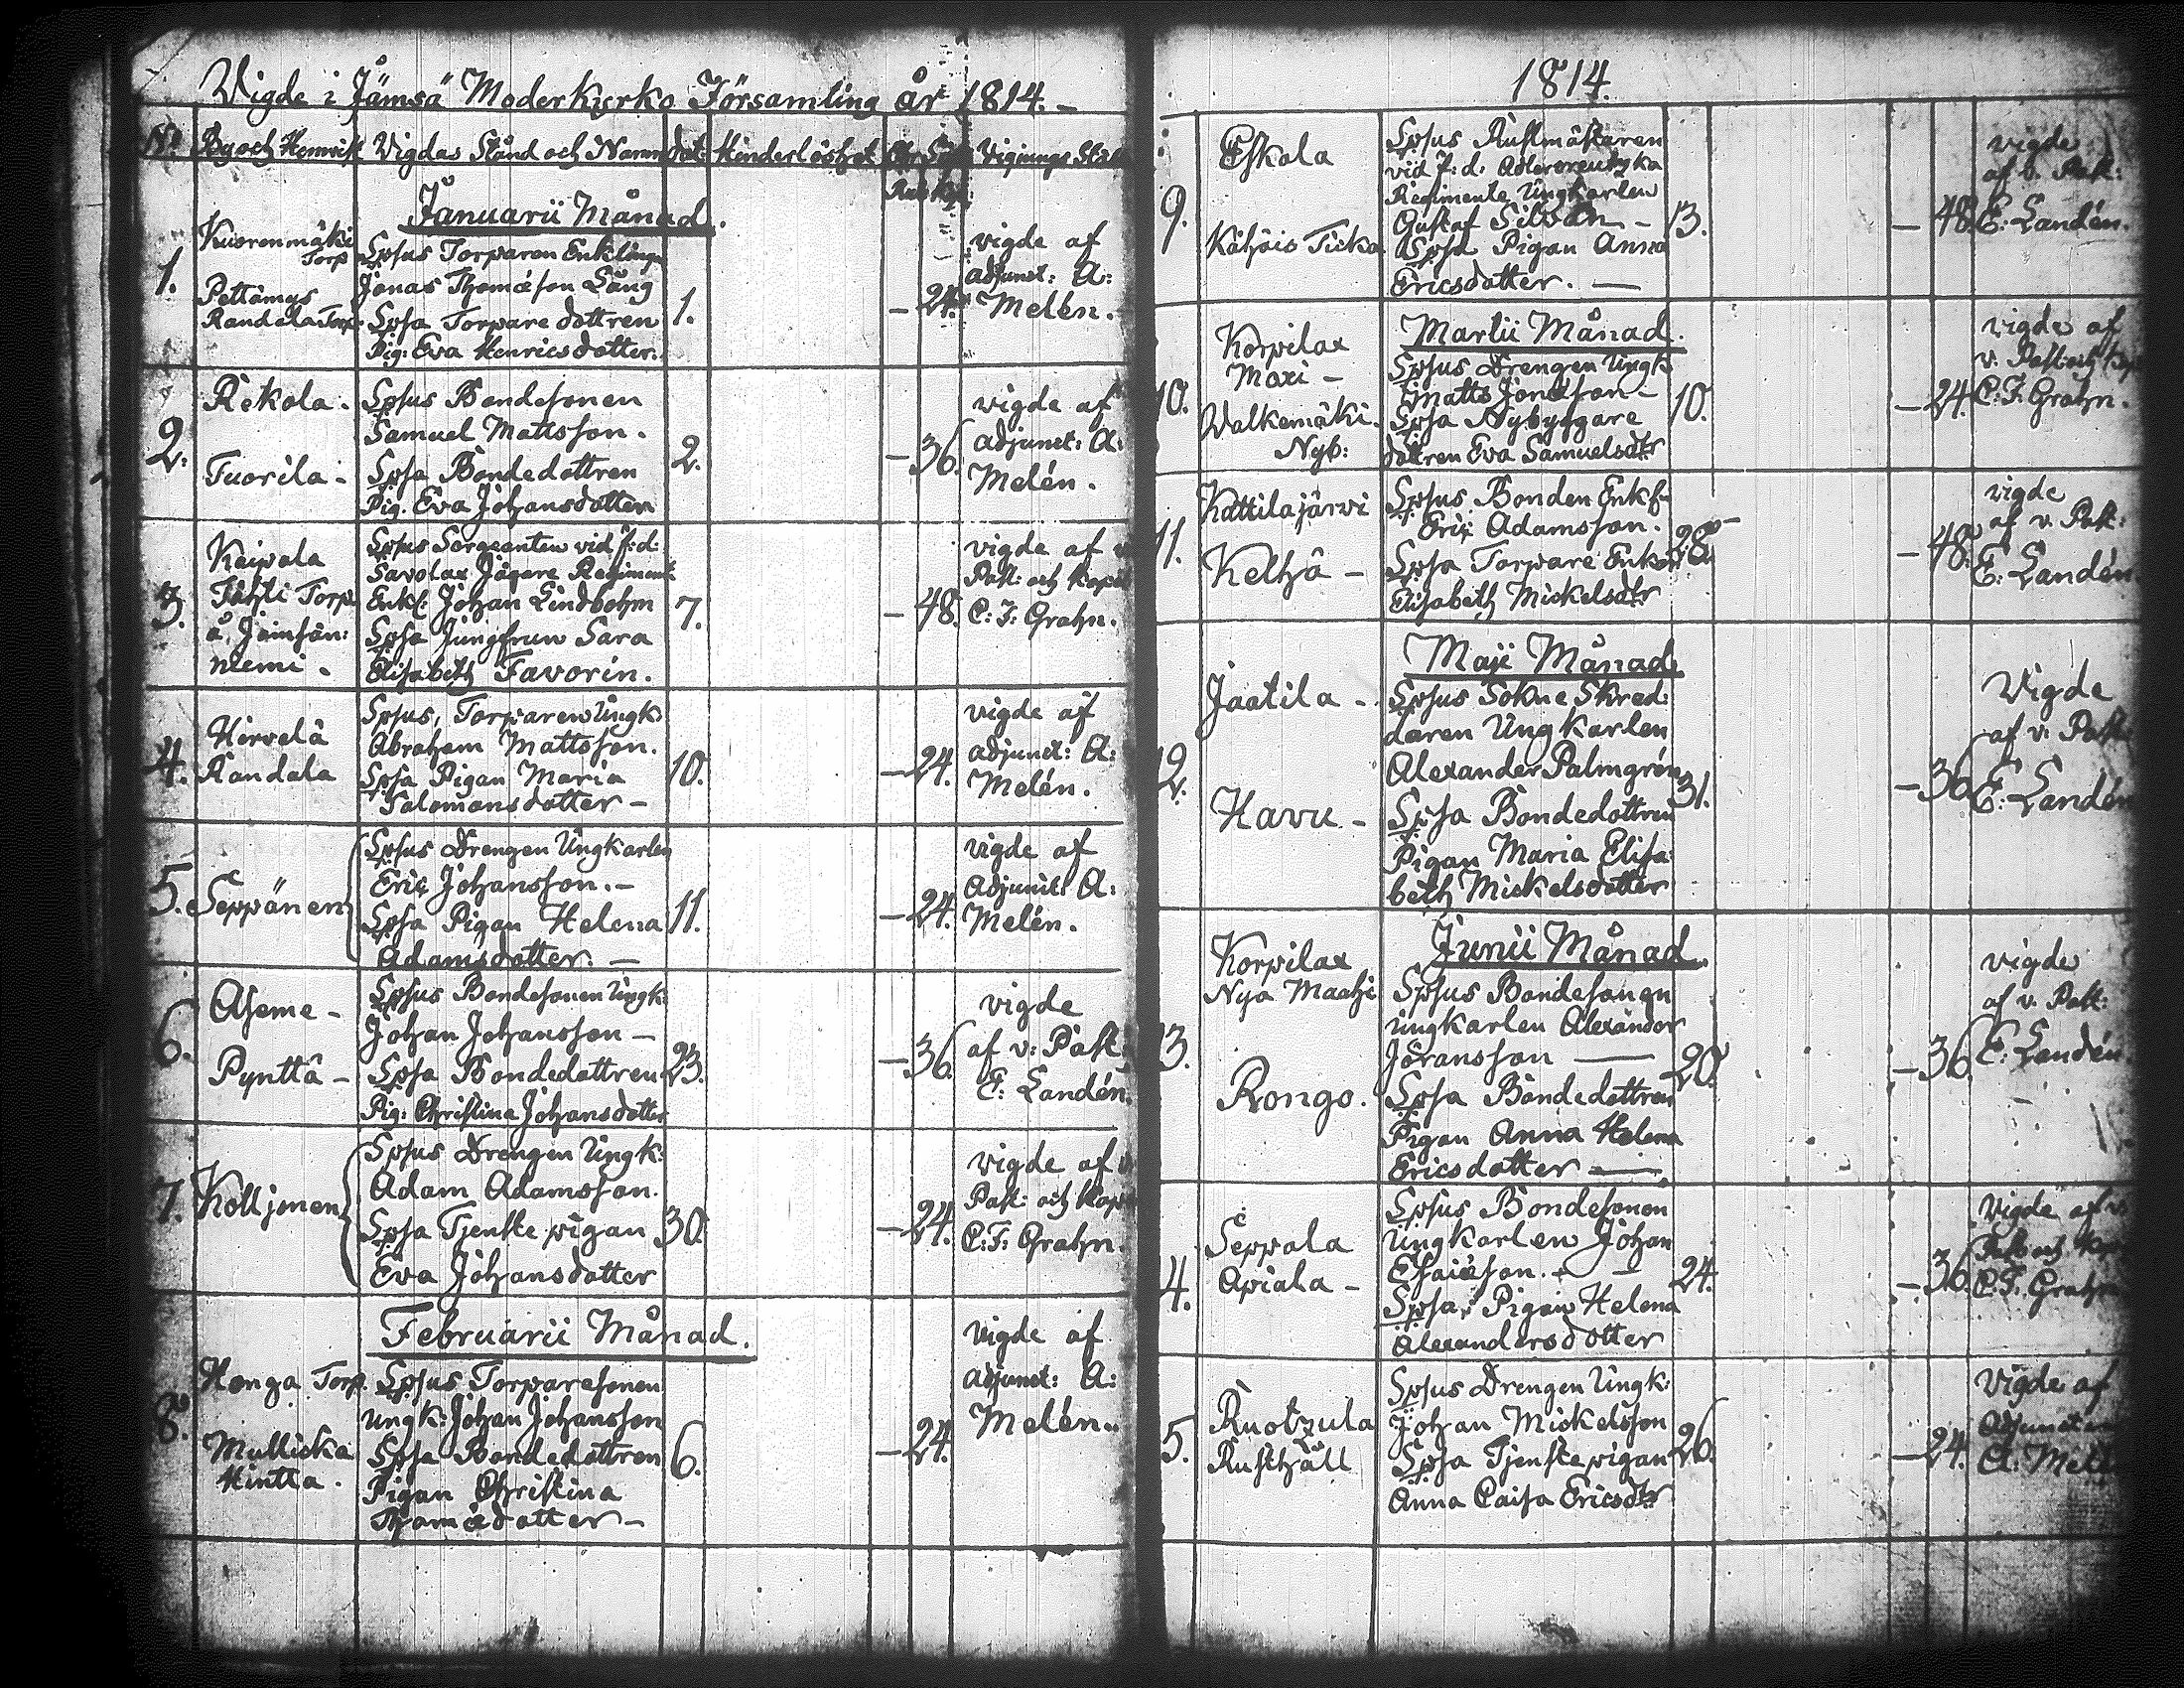 Vigde i Jämsä Moderkyrko Församling år 1814.
No By och Hemvist Vigdas Stånd och Namn dat: Hinderlöshet Vignings
Januarii Månad.
1.
Kuorenmäki
Torp
Pettämys
Randala Torp
Spsus Torparen Enklingen
Jonas Thomæson Lång
Spsa Torpare dottren
Pig: Eva Henricsdotter.
1.
– 24.
vigde af
adjunct: A:
Melén.
2.
Rekola.
Tuorila –
Spsus Bondesonen
Samuel Mattsson.
Spsa Bondedottren
Pig. Eva Johansdotter
2.
– 36.
vigde af
adjunct: A:
Melén.
3.
Keipola
Tähti Torp
å, Jämsän:
niemi.
Spsus Sergeanten vid f:d:
Savolax Jägare Regimente
Enkl: Johan Lindbohm
Spsa Jungfrun Sara
Elisabeth Favorin.
7.
– 48.
vigde af v
Past: och Kapel
C: F: Grahn.
4.
Hirvelä
Randala
Spsus, Torparen Ungk
Abraham Mattsson.
Spsa Pigan Maria
Salomonsdotter –
10.
– 24.
vigde af
adjunct: A:
Melén.
5.
Seppänen
Spsus Drengen Ungkarlen
Eric Johansson. –
Spsa Pigan Helena
Adamsdotter. –
11.
– 24.
vigde af
Adjunct: A:
Melén.
6.
Aseme –
Pynttä –
Spsus Bondesonen Ungk:
Johan Johansson –
Spsa Bondedottren
Pig: Christina Johansdotter
23.
– 36.
vigde
af v: Past:
E: Landén.
7.
Koljonen
Spsus Drengen Ungk:
Adam Adamsson.
Spsa Tjenste pigan
Eva Johansdotter
30.
– 24.
vigde af v
Past: och Kap
C: F: Grahn.
Februarii Månad.
8.
Honga Torp.
Mullicka
Hintta.
Spsus Torparesonen
Ungk: Johan Johansson
Spsa Bondedottren
Pigan Christina
Thomædotter –
6.
– 24.
vigde af
adjunct: A:
Melén.
1814.
9.
Eskola
Ticka
Spsus Rustmästaren
vid f: d: Adlercreutzka
Regimente Ungkarlen
Gustaf Silvan –
Spsa Pigan Anna
Ericsdotter. –
13.
– 48.
vigde
af v. Past:
E: Landén.
Martii Månad.
10.
Korpilax
Moxi –
Walkemäki.
Nyb:
Spsus Drengen Ungk
Matts Jonæson –
Spsa Nybyggare
dottren Eva Samuelsdtr
10.
– 24.
vigde af
v. Past och Kap
C: F: Grahn.
11.
Kattilajärvi
Keljä –
Spsus Bonden Enkl:
Eric Adamsson.
Spsa Torpare Enkan
Elisabeth Mickelsdtr
28
– 48.
vigde
af v. Past:
E: Landén
Maji Månad
12.
Jaatila –
Havu. –
Spsus Sokne Skred:
daren Ungkarlen
Alexander Palmgrén
Spsa Bondedottren
Pigan Maria Elisa:
beth Mickelsdotter
31.
– 36.
Vigde
af v. Past:
E: Landén
Junii Månad
13.
Korpilax
Nya Maahi
Rongo.
Spsus Bondesonen
Ungkarlen Alexander
Jöransson –
Spsa Bondedottren
Pigan Anna Helena
Ericsdotter –
20.
– 36.
vigde
af v. Past:
E: Landén.
4.
Seppola
Apiala –
Spsus Bondesonen
Ungkarlen Johan
Esaiæson. –
Spsa, Pigan Helena
Alexandersdotter
24.
– 36.
Vigde af v.
Past: och Kap
C: F: Grahn
5.
Ruotzula
Rusthåll
Spsus Drengen Ungk:
Johan Mickelsson
Spsa Tjenste pigan
Anna Caisa Ericsdtr
26.
– 24.
Vigde af
Adjuncten
A: Melén